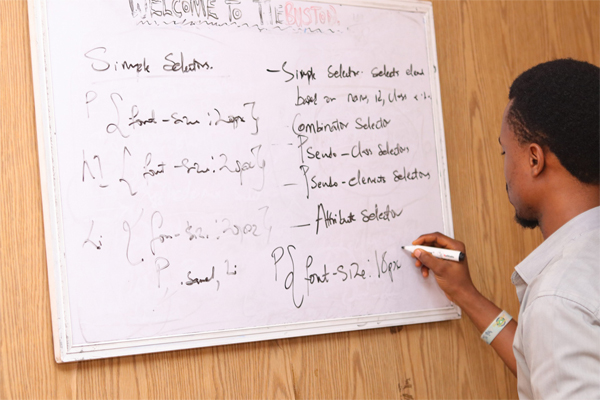 WELCOME TO THE
Simple Selectors.
P {font-size: 20px}
h2 { font-size: 20px}
Li {font-size: 20px}
P
- Simple Selector. Selects eleme
based on name, id, class
Combinator Selector
- Pseudo-class Selectors
- Pseudo-elements Selectors
- Attribute Selector
P{ font-size: 18px